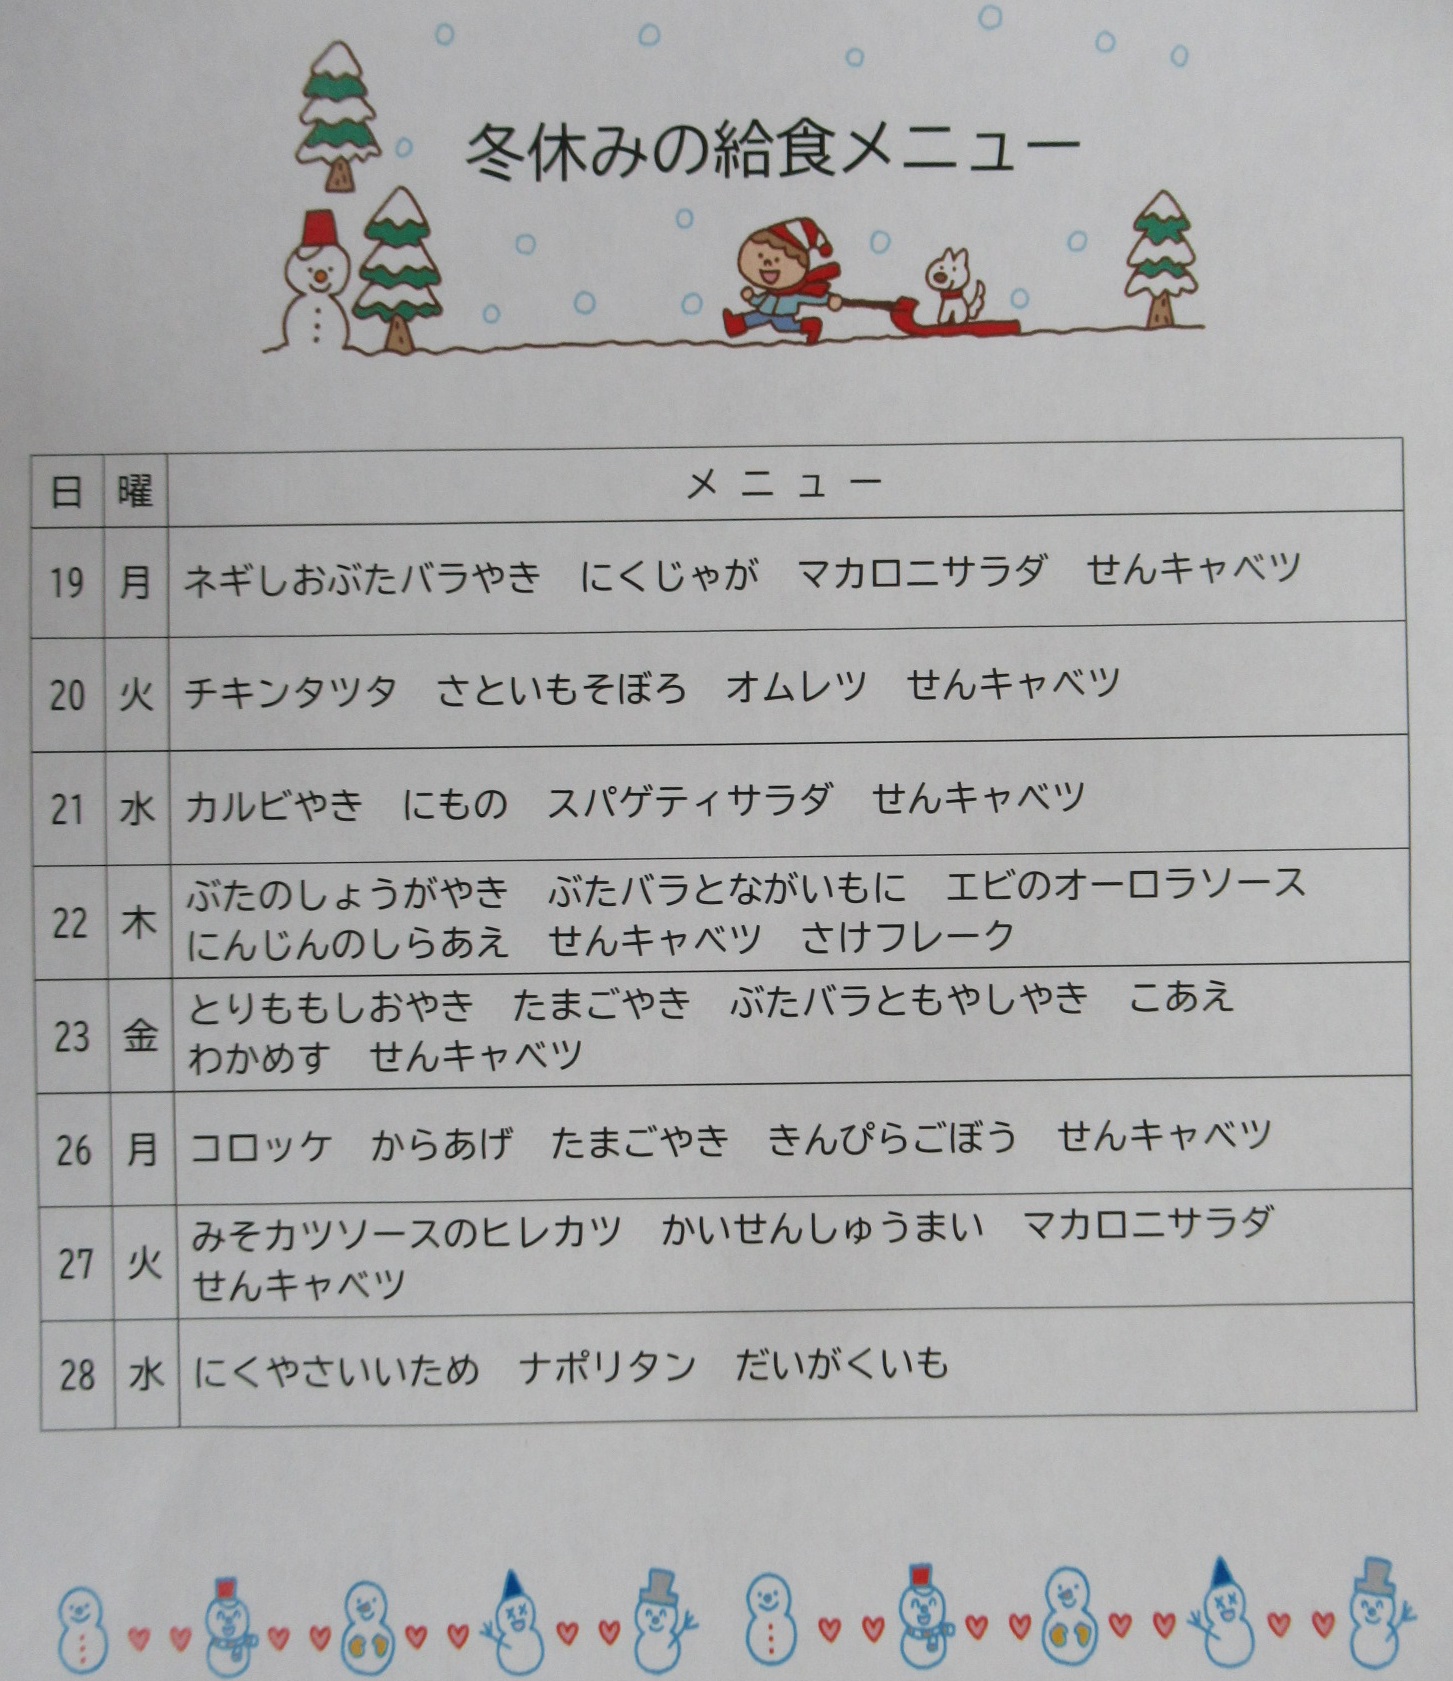 冬休みの給食メニュー
日 曜 メニュー
19 月 ネギしおぶたバラやき にくじゃが マカロニサラダ せんキャベツ
20 火 チキンタツタ さといもそぼろ オムレツ せんキャベツ
21 水 カルビやき にもの スパゲティサラダ せんキャベツ
22 木 ぶたのしょうがやき ぶたバラとながいもに エビのオーロラソース
にんじんのしらあえ せんキャベツ さけフレーク
23 金 とりももしおやき たまごやき ぶたバラともやしやき こあえ
わかめす せんキャベツ
26 月 コロッケ からあげ たまごやき きんぴらごぼう せんキャベツ
27 火 みそカツソースのヒレカツ かいせんしゅうまい マカロニサラダ
せんキャベツ
28 水 にくやさいいため ナポリタン だいがくいも